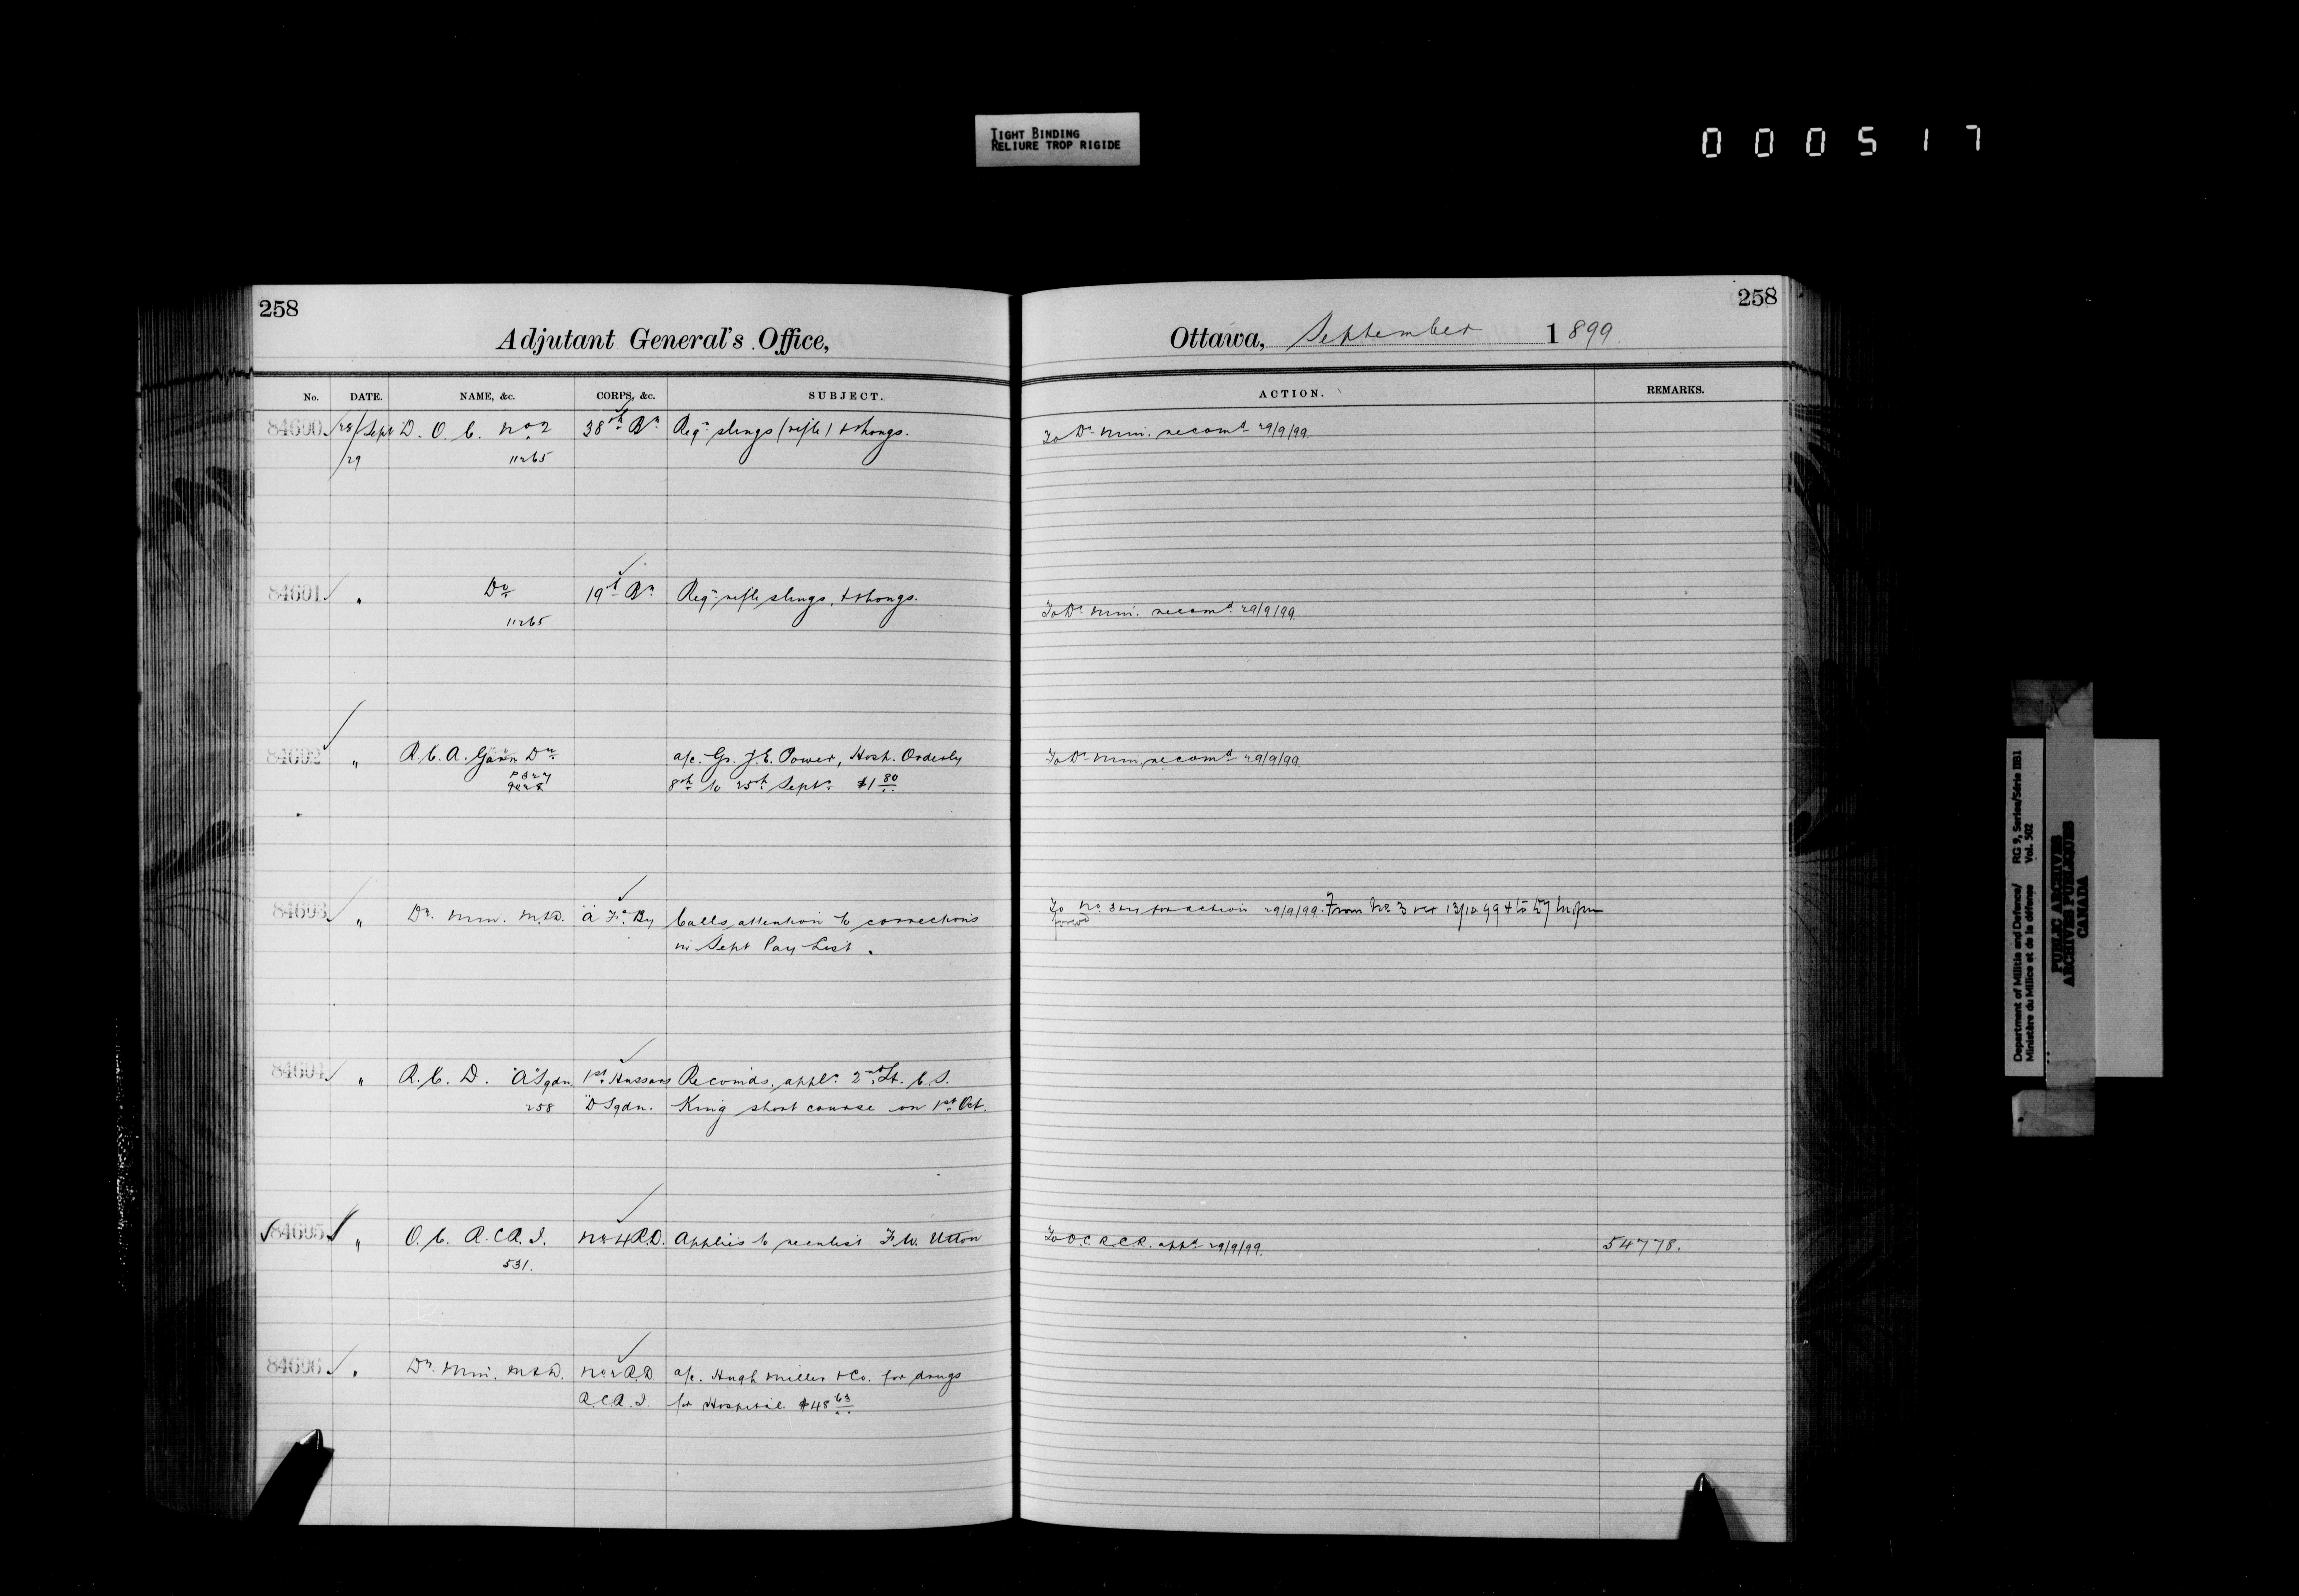 TIGHT BINDING
RELIURE TROP RIGIDE
000517
258
Adjutant General's Office,
No. DATE. NAME, &c. CORPS, &c. SUBJECT.
84690 28/Sept D. O. C. No 2 38th Bn Reqn slings (rifle) & thongs.
/29 11265
84691 " Do 19th Bn Reqn rifle slings, & thongs.
11265
84692 " R.C.A. Garrn Dn a/c. Gr. J. E. Power, Hosp. Orderly
8th to 25th Sept. $1 80
84693 " Dr. Min. M&D. "A" Fd By Calls attention to corrections
in Sept Pay List.
84694 " R. C. D. "A" Sqdn 1st Hussars Recomds. appln. 2nd Lt. C. S.
258 "D" Sqdn. King short course on 1st Oct.
84695 " O. C. R.C.R. I. No 4 R.D. Applies to reenlist F. W. Utton
531.
84696 " Dr. Min. M&D. No 2 R.D. a/c. Hugh Miller & Co. for drugs
R.C.R. I. for Hospital. $48 63
258
Ottawa, September 1899
ACTION. REMARKS.
To Dr Min. recomd 29/9/99.
To Dr Min. recomd 29/9/99.
To Dr Min. recomd 29/9/99.
To No. 3 for action 29/9/99. From No. 3 13/10/99 & to
To O.C. R.C.R. appd 29/9/99. 54778.
Department of Militia and Defence/ RG 9, Series/Série IIB1
Ministère du Milice et de la défense Vol. 502
PUBLIC ARCHIVES
ARCHIVES PUBLIQUES
CANADA